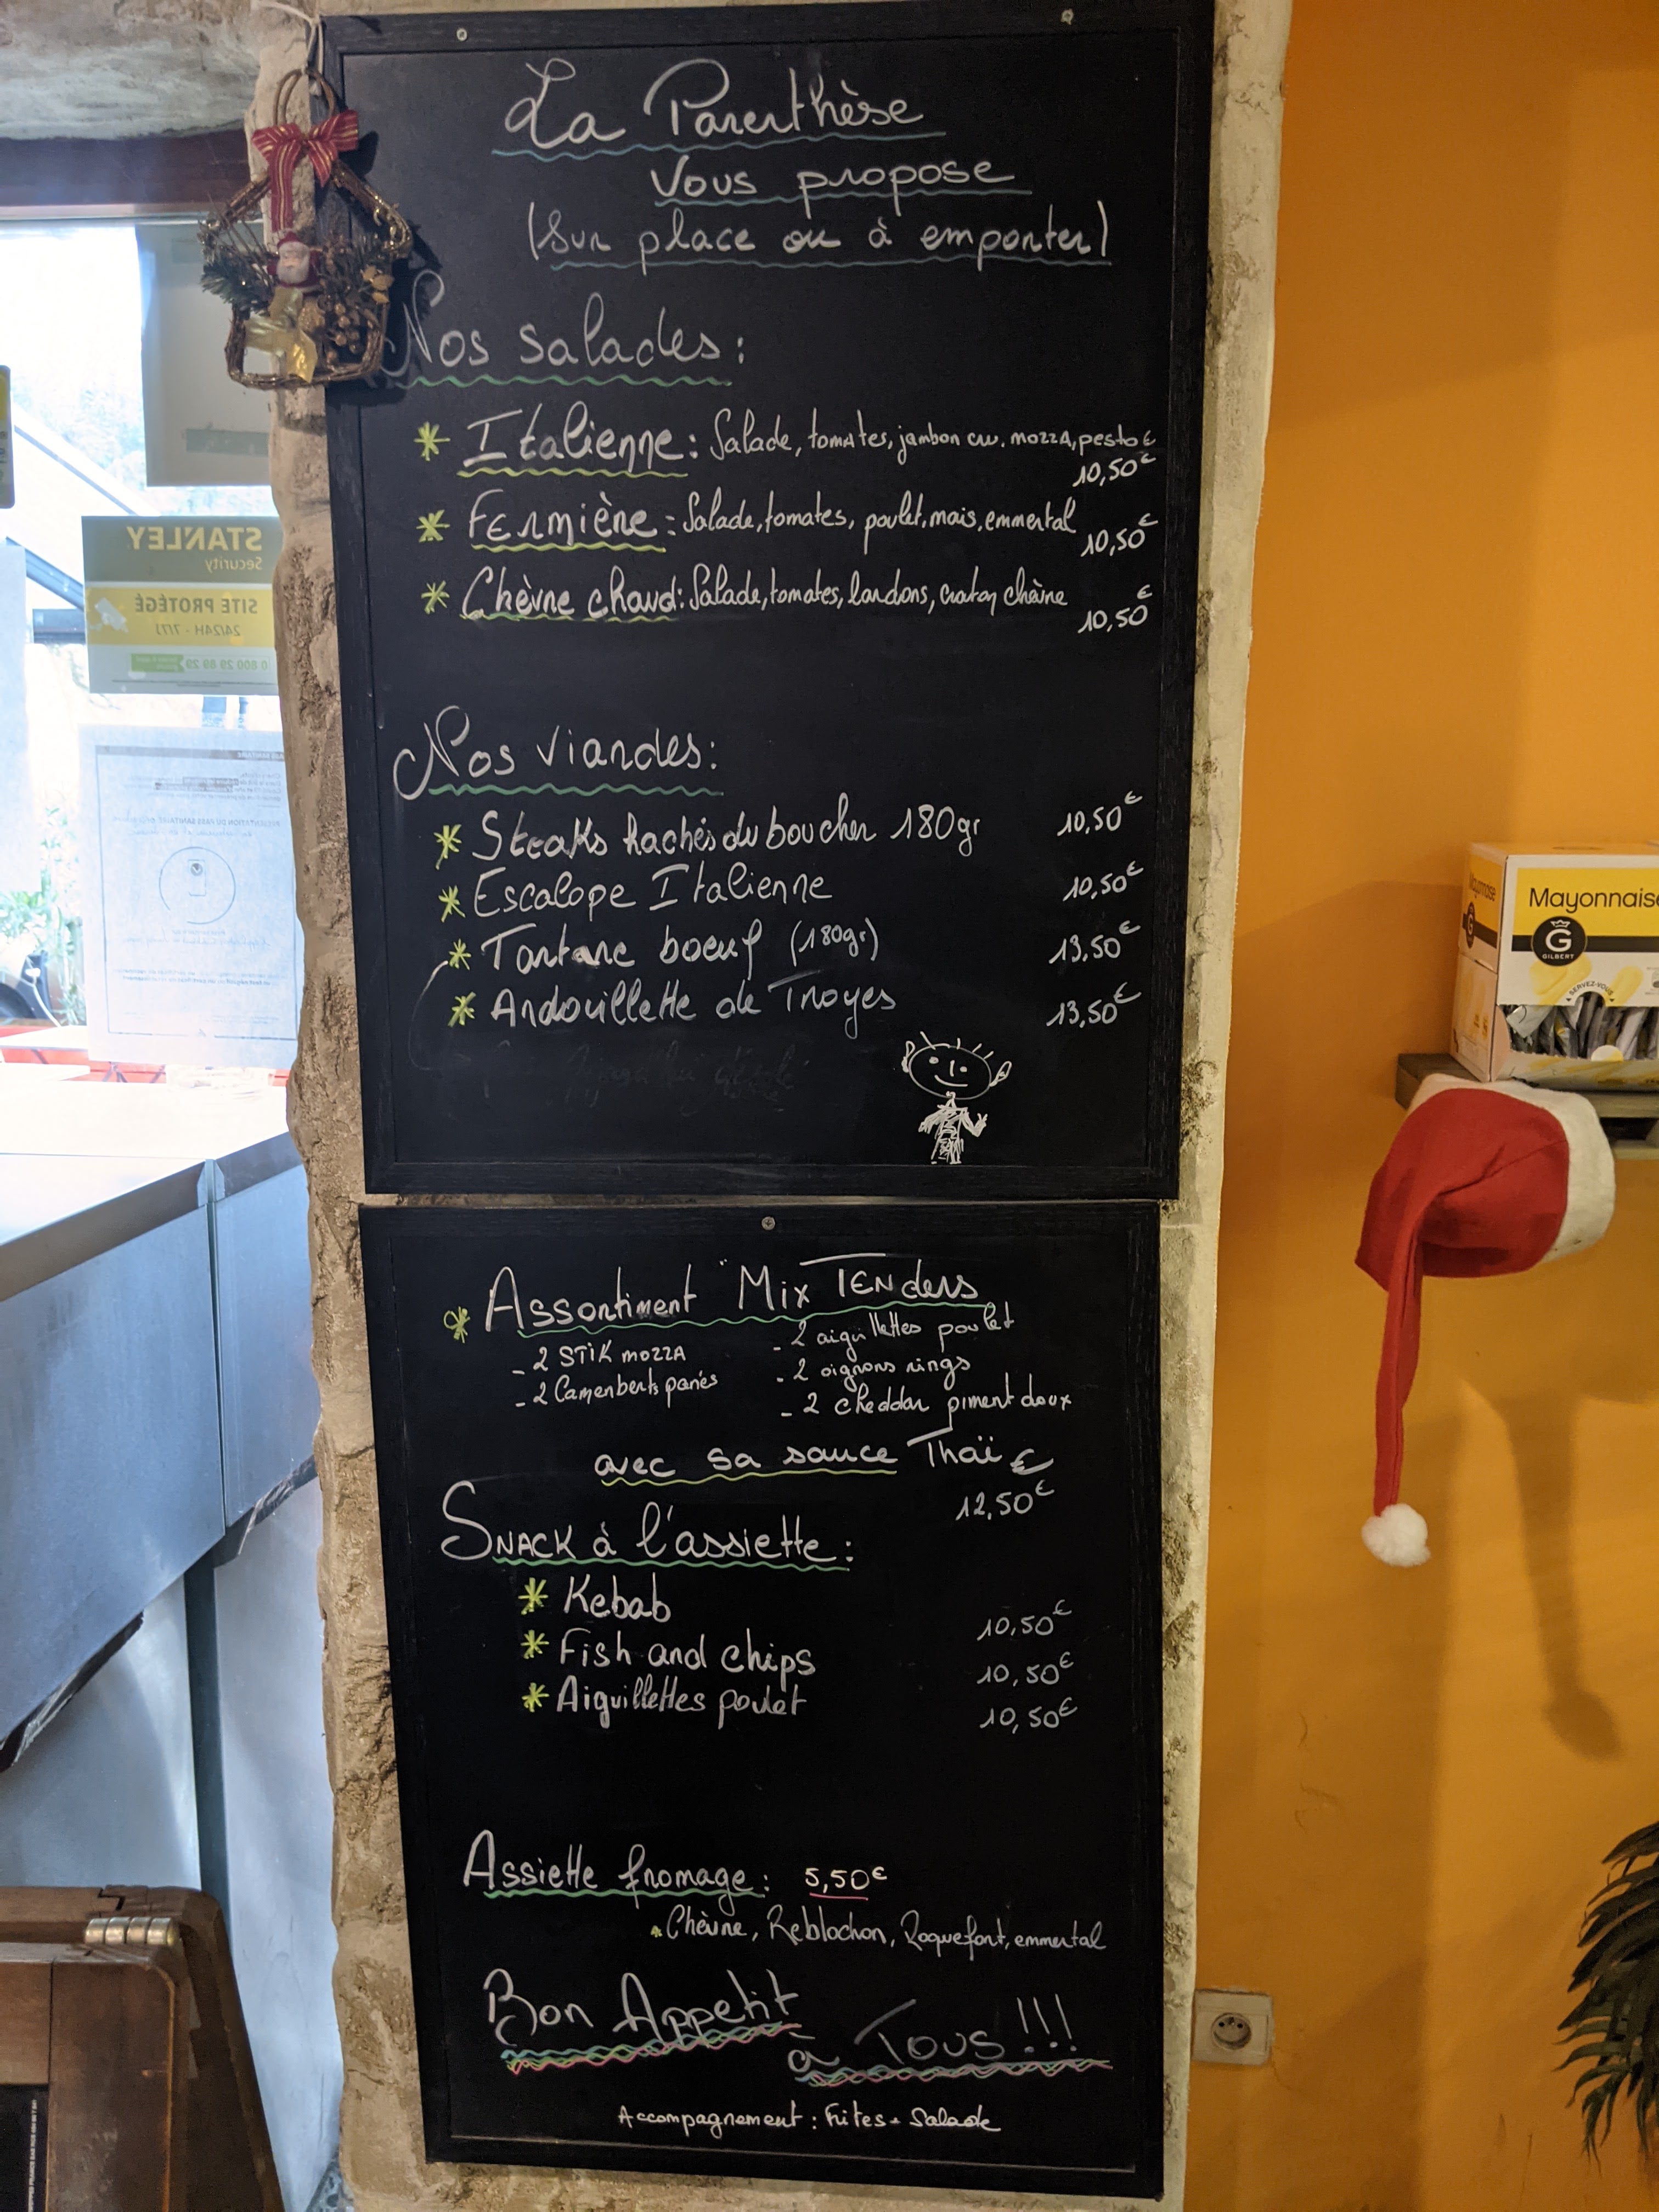 La Parenthèse
Vous propose
(Sur place ou à emporter)
Nos salades :
* Italienne : Salade, tomates, jambon cru, mozza, pesto €
10,50€
* Fermière : Salade, tomates, poulet, mais, emmental
10,50€
* Chèvre chaud : Salade, tomates, lardons, chèvre
10,50€
Nos viandes :
* Steaks hachés du boucher 180gr 10,50€
* Escalope Italienne 10,50€
* Tartare boeuf (180gr) 13,50€
* Andouillette de Troyes 13,50€
* Assortiment "Mix Tenders
- 2 aiguillettes poulet
- 2 STiK mozza
- 2 oignons rings
- 2 Camemberts panés
- 2 cheddar piment doux
avec sa sauce Thaï €
12,50€
Snack à l'assiette :
* Kebab 10,50€
* Fish and chips 10,50€
* Aiguillettes poulet 10,50€
Assiette fromage : 5,50€
* Chèvre, Reblochon, Roquefort, emmental
Bon Appetit
à Tous !!!
Accompagnement : Frites - Salade
STANLEY
Security
SITE PROTÉGÉ
24/24H - 7/7J
0 800 29 89 29
PRÉSENTATION DU PASS SANITAIRE
Mayonnaise
Mayonnaise
G
GILBERT
SERVEZ-VOUS